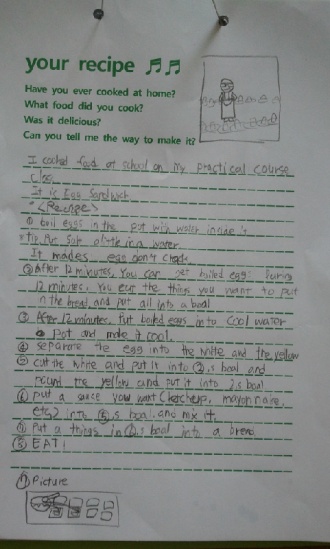 your recipe
Have you ever cooked at home?
What food did you cook?
Was it delicious?
Can you tell me the way to make it?
I cooked food at school on my practical course
class
It is Egg Sandwich
<Recipe>
① boil eggs in the pot with water inside
tip Put Salt in a water
It makes egg don't
② After 12 minutes, You can get boiled egg.
12 minutes. You cut the things you want to put
in the bread, and put all into a boal
③ After 12 minutes. Put boiled eggs into cool water
Pot and make it cool.
④ separate the egg into the white and the yellow
⑤ cut the white and put it into 's boal and
pound the yellow and put it into 's boal
⑥ put a sauce you want (ketchup, mayonnaire,
etc) into 's boal and mix it.
Put a things in 's boal into a bread
EAT!
Picture